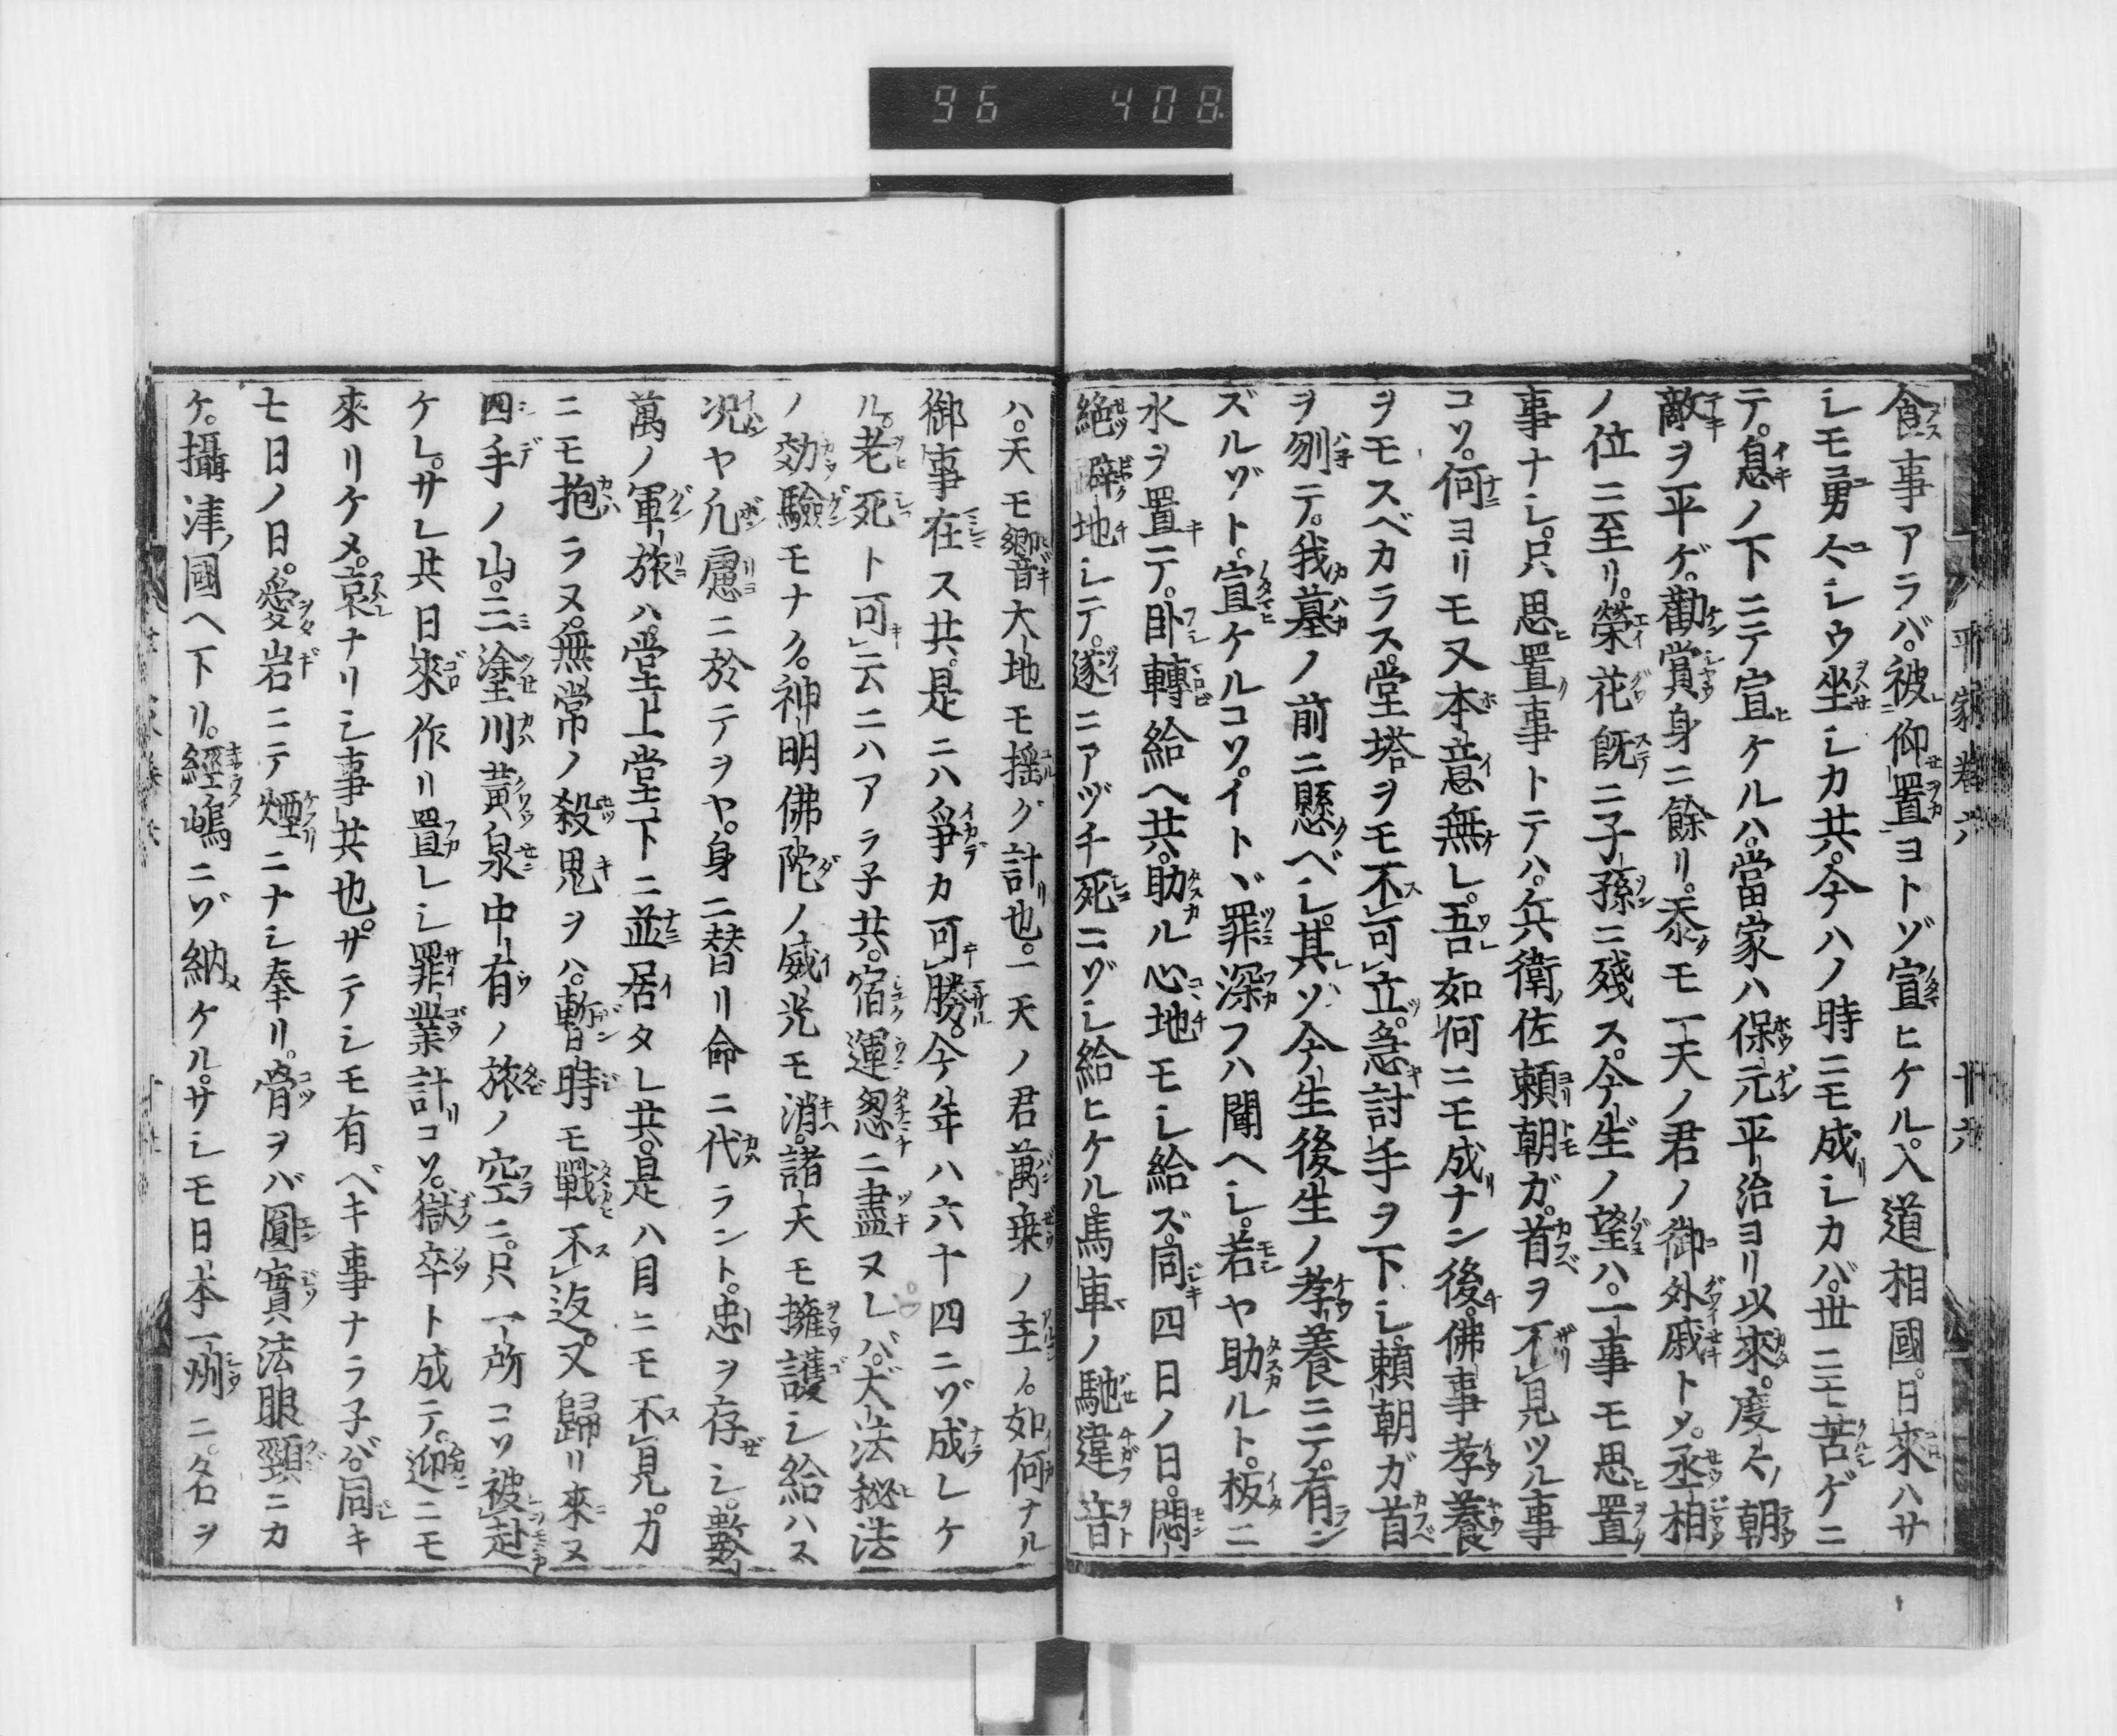 96 408
平家卷六 十六
食事アラバ。被仰置ヨトゾ宣ヒケル。入道相國。日來ハサ
シモ勇々シウ坐シカ共。今ハノ時ニモ成シカバ。世ニモ苦ゲニ
テ。息ノ下ニテ宣ケルハ。當家ハ保元平治ヨリ以來。度々ノ朝
敵ヲ平ゲ。勸賞身ニ餘リ。忝モ一天ノ君ノ御外戚トメ。丞相
ノ位ニ至リ。榮花既ニ子孫ニ殘ス。今生ノ望ハ。一事モ思置
事ナシ。只思置事トテハ。兵衛佐頼朝ガ。首ヲ不見ツル事
コソ。何ヨリモ又本意無レ。吾如何ニモ成ナン後。佛事孝養
ヲモスベカラス。堂塔ヲモ不可立。急討手ヲ下シ。頼朝ガ首
ヲ刎テ。我墓ノ前ニ懸ベシ。其ソ今生後生ノ孝養ニテ。有ン
ズルゾト。宣ケルコソ。イトヾ罪深フハ聞ヘシ。若ヤ助ルト。板ニ
水ヲ置テ。卧轉給ヘ共。助ル心地モシ給ズ。同四日ノ日。悶
絶躃地シテ。遂ニアヅチ死ニゾシ給ヒケル。馬車ノ馳違音
ハ。天モ響大地モ揺グ計也。一天ノ君萬乗ノ主ノ。如何ナル
御事在ス共。是ニハ爭カ可勝。今年ハ六十四ニゾ成レケ
ル。老死ト可云ニハアラ子共。宿運忽ニ盡ヌレバ。大法秘法
ノ効驗モナク。神明佛陀ノ威光モ消。諸天モ擁護シ給ハス
况ヤ凡慮ニ於テヲヤ。身ニ替リ命ニ代ラント。忠ヲ存ジ。數
萬ノ軍旅ハ。堂上堂下ニ並居タレ共。是ハ目ニモ不見。力
ニモ抱ラヌ。無常ノ殺鬼ヲハ。暫時モ戰不返。又歸リ來ヌ
四手ノ山。三塗川。黄泉中有ノ旅ノ空ニ。只一所コソ被赴
ケレ。サレ共日來作リ置レシ罪業計コソ。獄卒ト成テ。迎ニモ
來リケメ。哀ナリシ事共也。サテシモ有ベキ事ナラ子バ。同キ
七日ノ日。愛岩ニテ煙ニナシ奉リ。骨ヲバ圓實法眼頸ニカ
ケ。攝津國ヘ下リ。經嶋ニゾ納ケル。サシモ日本一州ニ。名ヲ